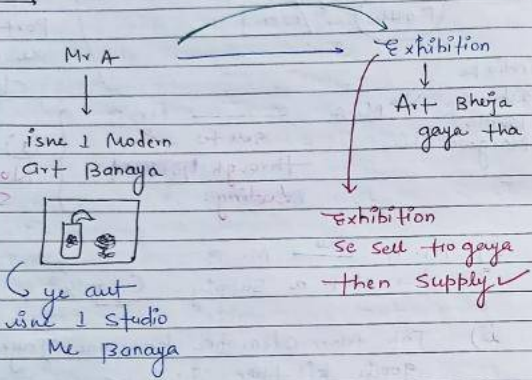 Mr A
Exhibition
Art Bheja
gaya tha
isne 1 Modern
art Banaya
Exhibition
se sell ho gaya
then Supply ✓
ye art
isne 1 Studio
Me Banaya